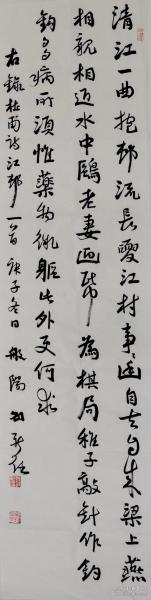 清江一曲抱邨流長夏江村事〻幽自去自來梁上燕
相親相近水中鷗老妻画帋為棋局稚子敲針作釣
鈎多病所須惟藥物微軀此外更何求
右錄杜甫詩江邨一首庚子冬日般陽